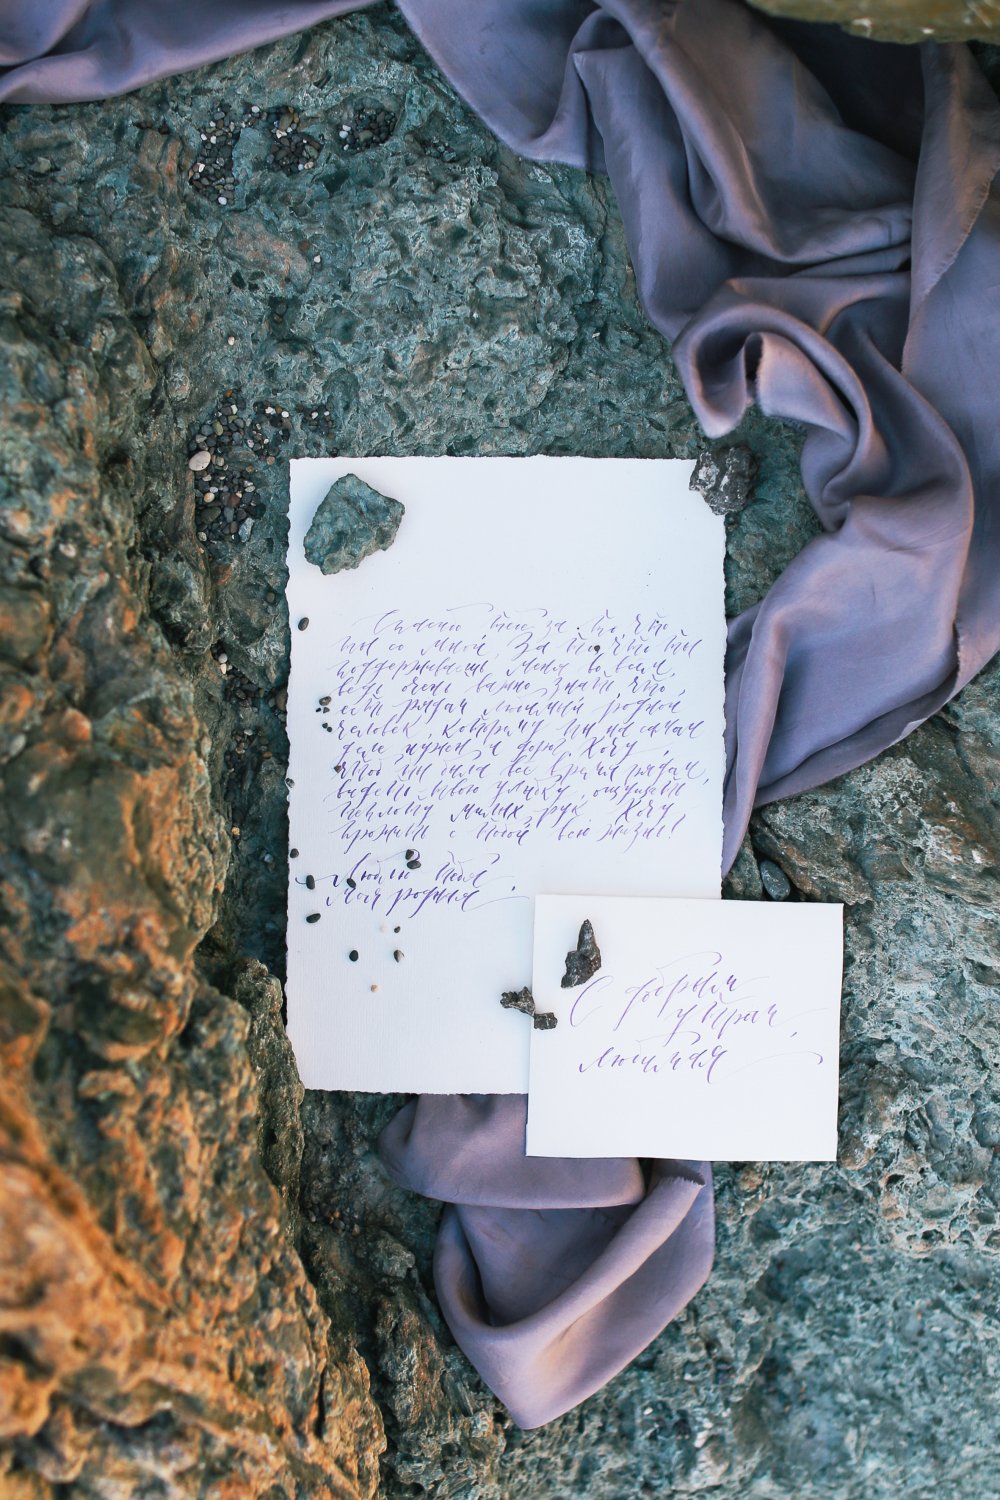 Спасибо тебе за то, что
ты со мной. За то, что ты
поддерживаешь меня во всем,
ведь очень важно знать, что
есть рядом любимый родной
человек, которому ты
нужен и дорог. Хочу,
чтоб ты была все время рядом,
видеть твою улыбку, ощущать
теплоту милых рук. Хочу
прожить с тобой всю жизнь!
Люблю тебя
моя родная.
С добрым
утром,
любимая